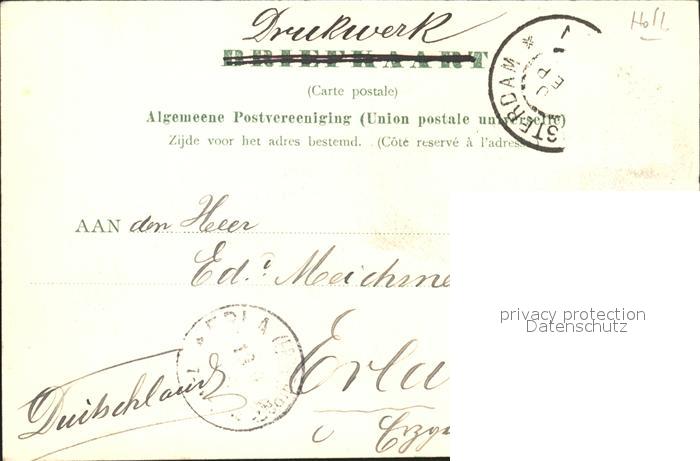 Drukwerk
Holl
BRIEFKAART
(Carte postale)
Algemeene Postvereeniging (Union postale universelle)
Zijde voor het adres bestemd. (Côté reservé à l'adres
STERDAM *
AAN den Heer
Ed. Meichsne
privacy protection
Datenschutz
Erla
Duitschland